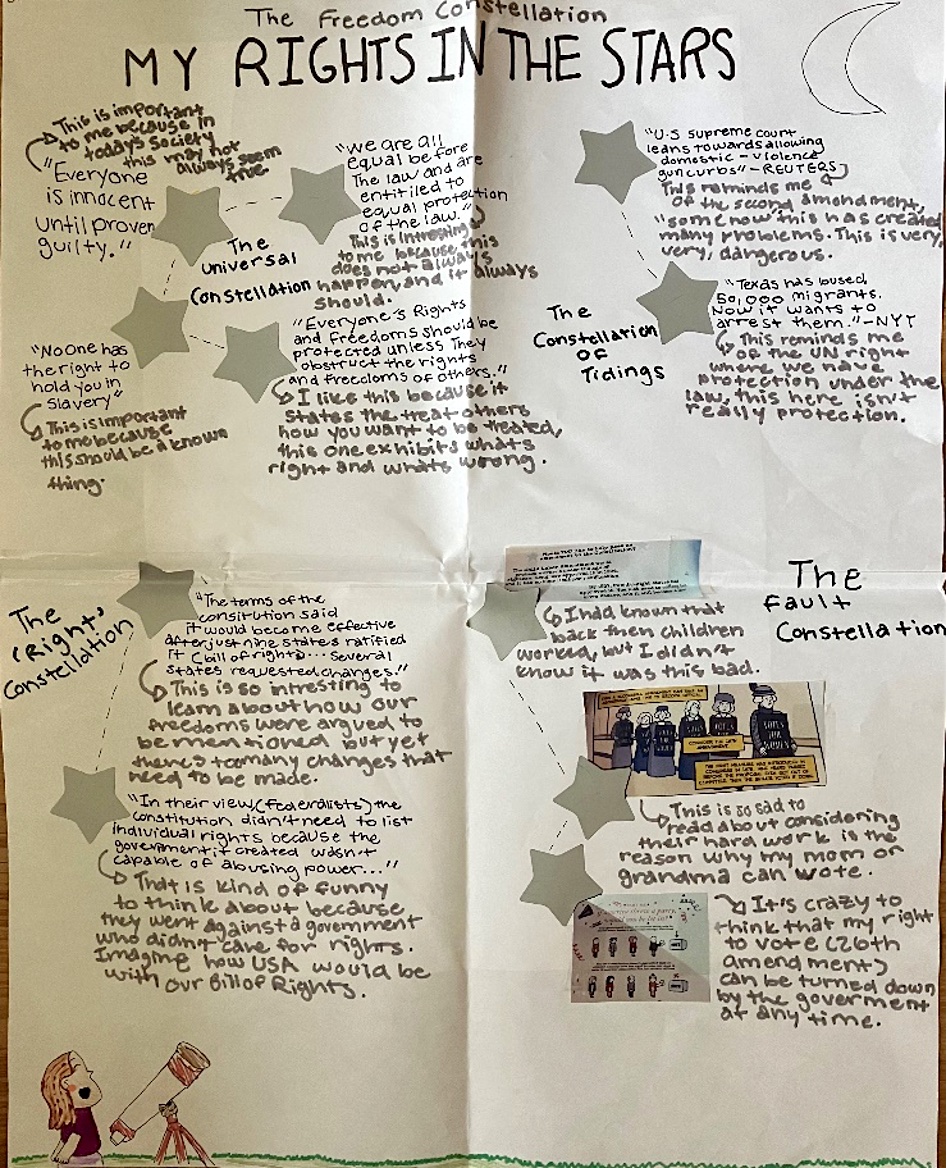 The Freedom Constellation
MY RIGHTS IN THE STARS
This is important
to me because in
today's society
this may not
always seem
true
"Everyone
is innocent
until proven
guilty."
"We are all
equal before
The law and are
entitiled to
equal protection
of the law."
This is intresting
to me because this
does not always
happen, and it always
should.
The
universal
Constellation
"No One has
the right to
hold you in
Slavery"
This is important
to me because
this should be a known
thing.
"Everyone's Rights
and Freedoms should be
protected unless They
obstruct the rights
and freedoms of others."
I like this because it
states the treat others
how you want to be treated,
this one exhibits whats
right and whats wrong.
"U.S supreme court
leans towards allowing
domestic - violence
gun curbs" - REUTERS
This reminds me
of the second amendment,
"somehow this has created
many problems. This is very,
very, dangerous.
The
Constellation
OF
Tidings
"Texas has bused
50,000 migrants.
Now it wants to
arrest them." - NYT
This reminds me
of the UN right
where we have
protection under the
law, this here isn't
really protection.
The
'Right'
Constellation
"The terms of the
consitution said
it would become effective
after just nine states ratified
it (bill of rights)... Several
states requested changes."
This is so intresting to
learn about how our
freedoms were argued to
be mentioned but yet
there's too many changes that
need to be made.
"In their view (federalists) the
constitution didn't need to list
individual rights because the
government it created wasn't
capable of abusing power..."
That is kind of funny
to think about because
they went against a government
who didn't care for rights.
Imagine how USA would be
with our Bill of Rights.
The
Fault
Constellation
I had known that
back then children
worked, but I didn't
know it was this bad.
CONSIDER THE 19TH
AMENDMENT.
VOTES
FOR
WOMEN
This is so sad to
read about considering
their hard work is the
reason why my mom or
grandma can vote.
It's crazy to
think that my right
to vote (26th
amendment)
can be turned down
by the goverment
at any time.